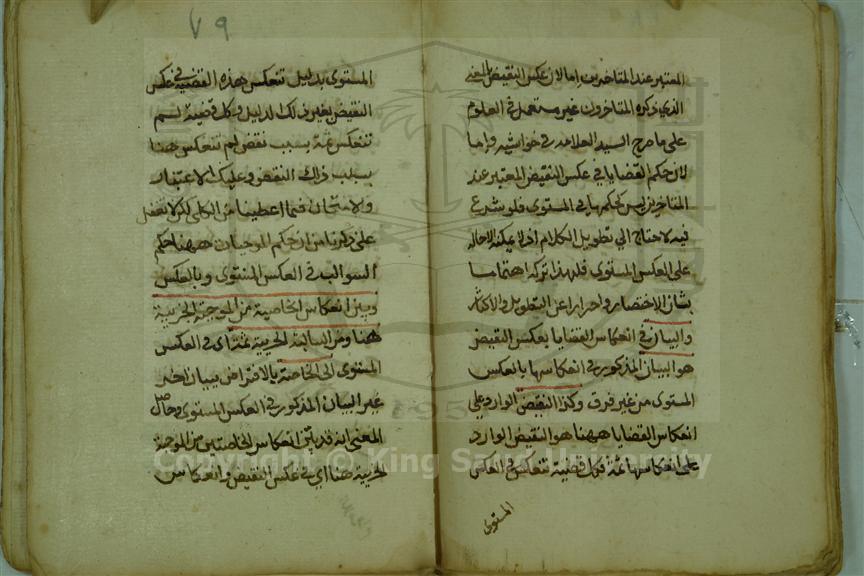 المعتبر عند المتاخرين اما لان عكس النقيض بالمعنى
الذي ذكره المتاخرون غير مستعمل في العلوم
على ما صرح السيد العلامة في حواشيه واما
لان حكم القضايا في عكس النقيض المعتبر عند
المتاخرين ليس كحكمها في المستوى فلو شرع
فيه لاحتاج الي تطويل الكلام اذ لا يمكنه الاحالة
على العكس المستوى فلهذا تركه اهتماما
بشان الاختصار واحترازا عن التطويل والاكثار
والبيان في انعكاس القضايا بعكس النقيض
هو البيان المذكور في انعكاسها بالعكس
المستوى من غير فرق وكذا النقيض الوارد علي
انعكاس القضايا ههنا هو النقيض الوارد
على انعكاسها ثمة فكل قضية تنعكس في العكس
المستوى
٧٩
المستوى بدليل تنعكس هذه القضية في عكس
النقيض بغير ذلك الدليل وكل قضية لم
تنعكس ثمة بسبب نقض لم تنعكس هنا
بسبب ذلك النقض وعليك الاعتبار
والامتحان فيما اعطينا من الكلى لكن لا تغفل
على ذكرنا من ان حكم الموجبات ههنا حكم
السوالب في العكس المستوى وبالعكس
وبين انعكاس الخاصية من الموجبة الجزيية
ههنا ومن السالبة الجزيية ثمة اى في العكس
المستوى الى الخاصة بالافتراض ببيان اخر
غير البيان المذكور في العكس المستوى وحاصل
المعنى انه قد بين انعكاس الخاصتين من الموجبة
الجزيية هنا اي في عكس النقيض وانعكاس
Copyright © King Saud University